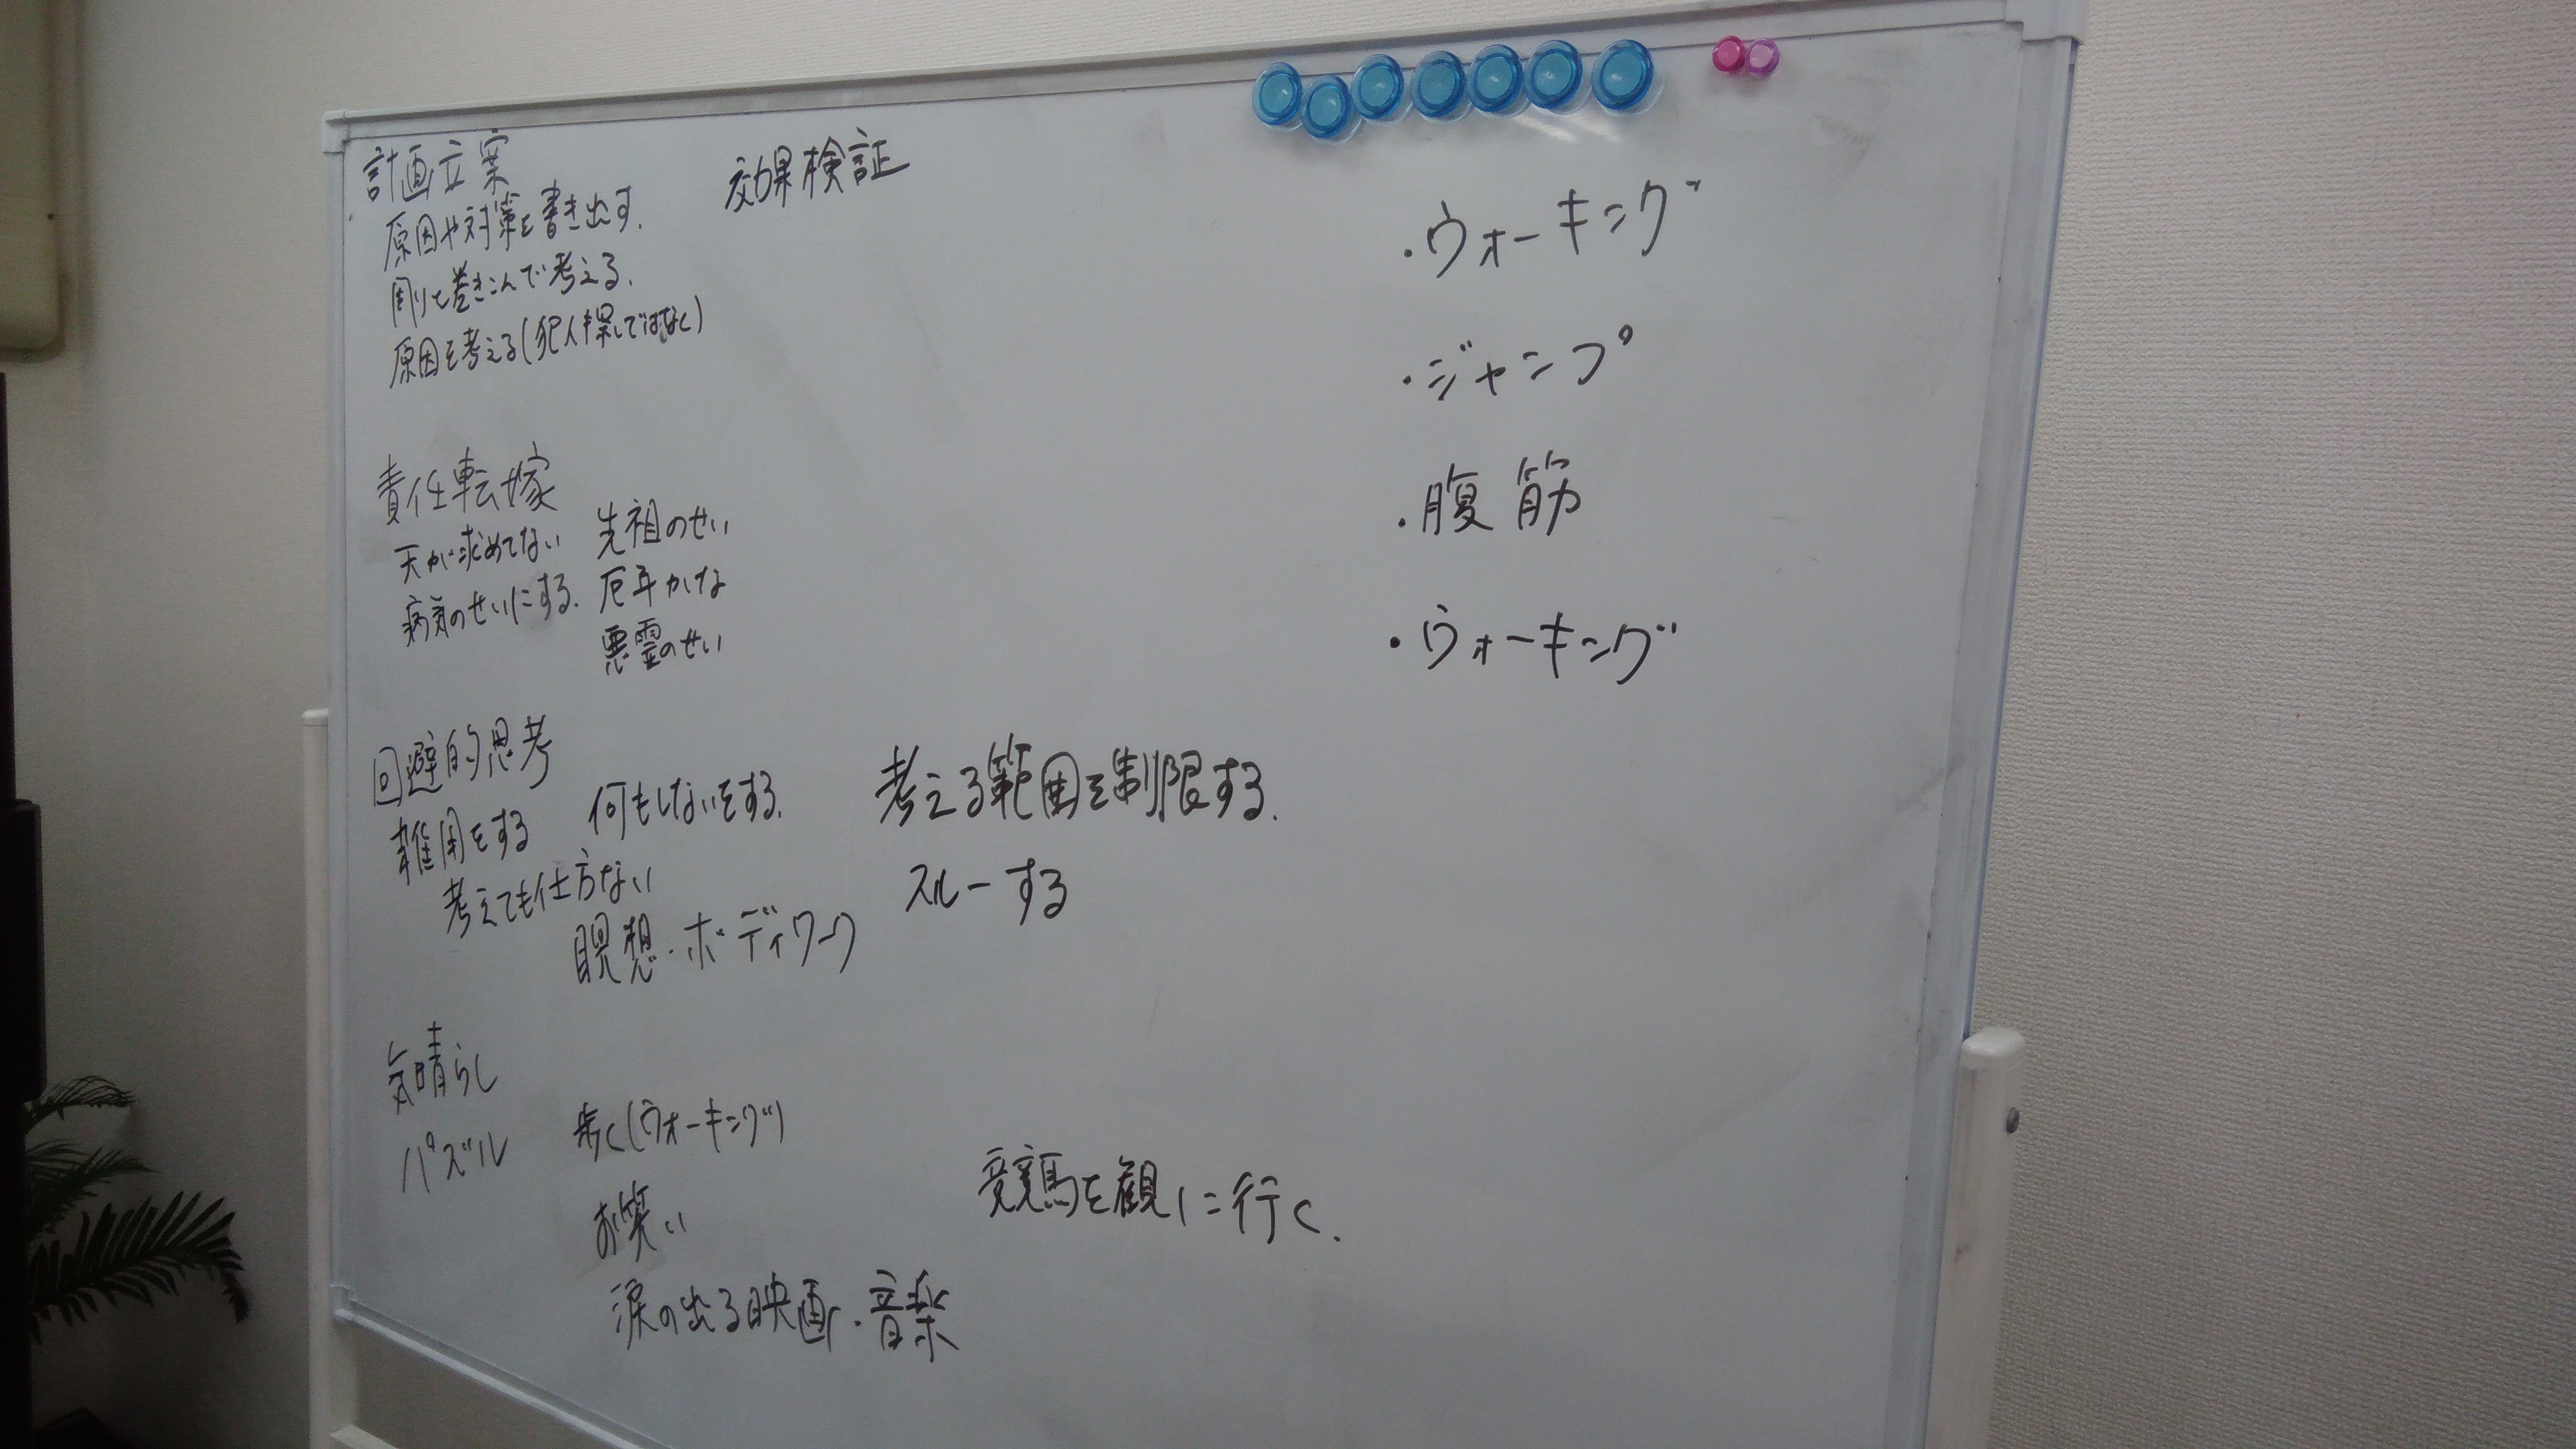 計画立案
原因や対策を書き出す.
周りを巻きこんで考える.
原因を考える(犯人探しではなく)
効果検証
責任転嫁
天が求めてない
病気のせいにする.
先祖のせい
厄年かな
悪霊のせい
回避的思考
雑用をする
何もしないをする.
考えても仕方ない
瞑想・ボディワーク
考える範囲を制限する.
スルーする
気晴らし
パズル
歩く(ウォーキング)
お笑い
涙の出る映画・音楽
競馬を観に行く.
・ウォーキング
・ジャンプ
・腹筋
・ウォーキング